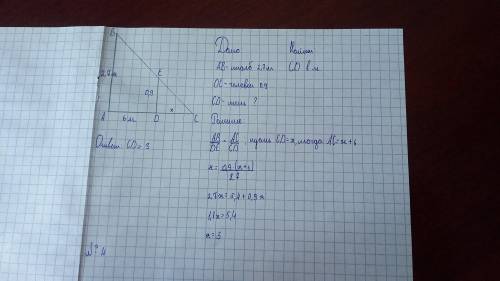 B
2,7 м
E
0,9
x
A 6 м D C
Ответ: CD = 3
№ 4
Дано Найти
AB - столб 2,7 м CD в м
DE - человек 0,9
CD - тень ?
Решение
AB/DE = AC/CD пусть CD = x, тогда AC = x + 6
x = 0,9 (x+6)/2,7
2,7x = 5,4 + 0,9x
1,8x = 5,4
x = 3